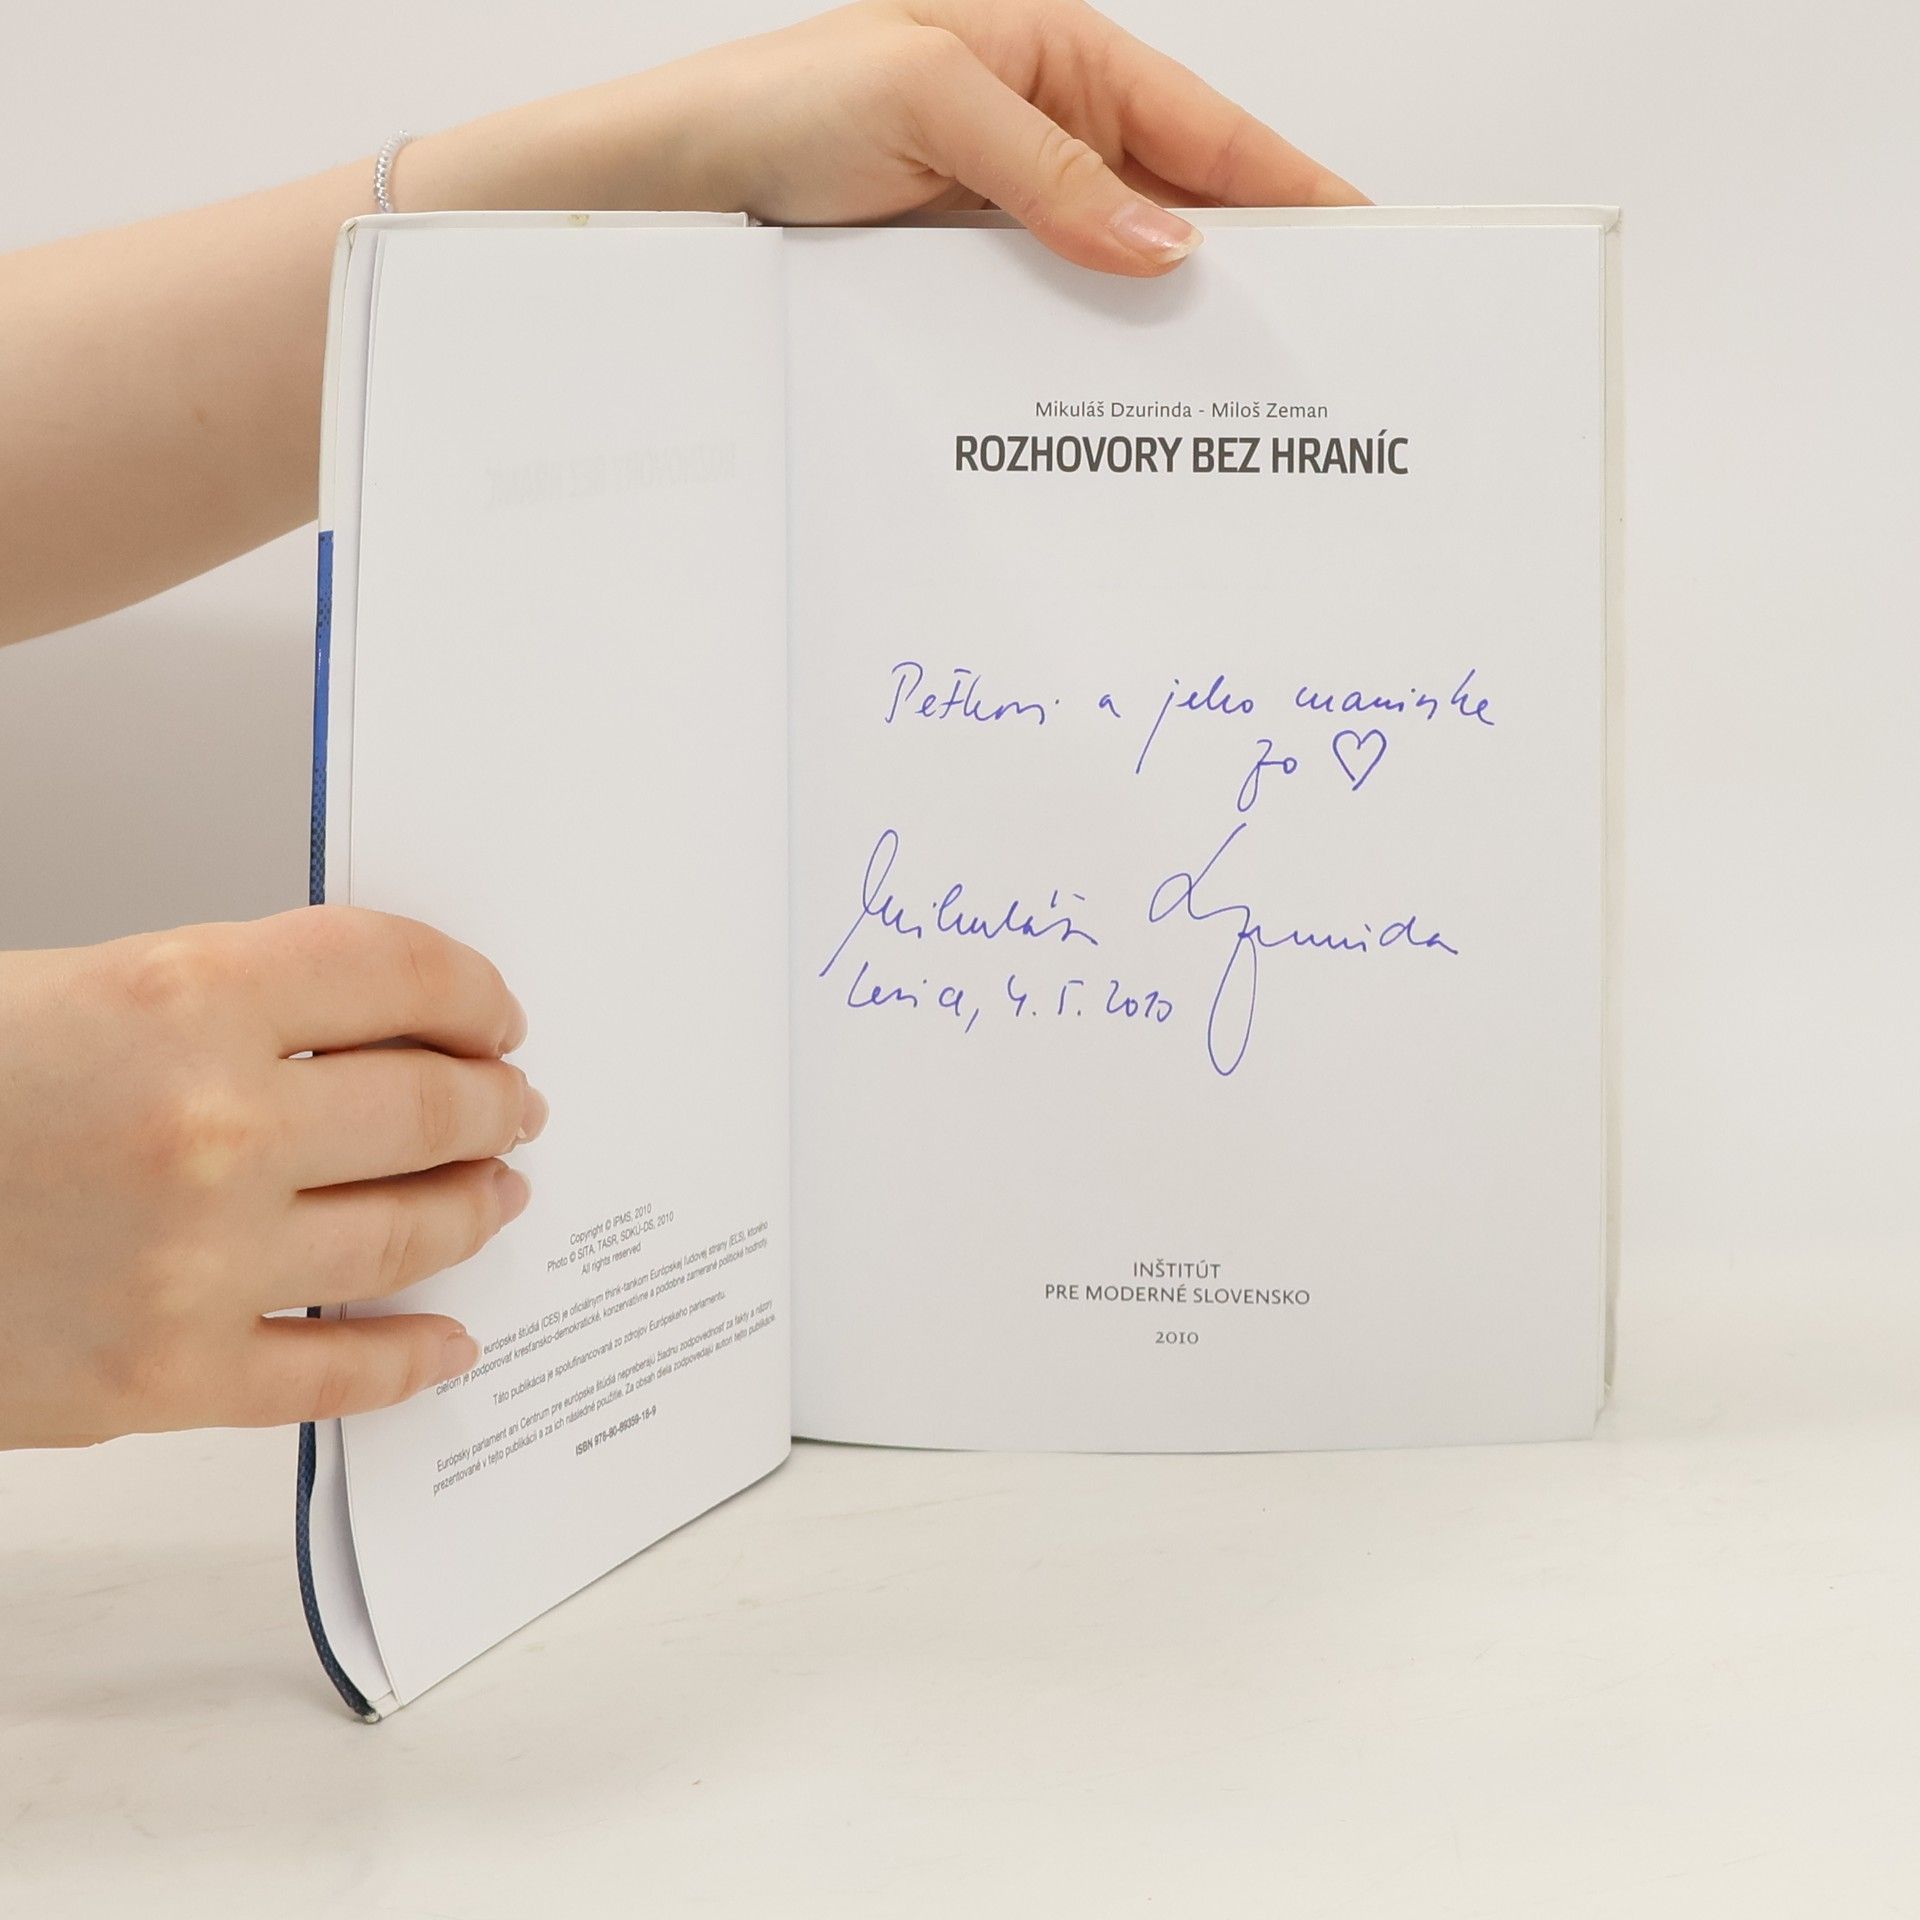 Copyright © IPMS, 2010
Photo © SITA, TASR, SDKÚ-DS, 2010
All rights reserved
európske štúdiá (CES) je oficiálnym think-tankom Európskej ľudovej strany (ELS), ktorého
cieľom je podporovať kresťansko-demokratické, konzervatívne a podobne zamerané politické hodnoty.
Táto publikácia je spolufinancovaná zo zdrojov Európskeho parlamentu.
Európsky parlament ani Centrum pre európske štúdiá nepreberajú žiadnu zodpovednosť za fakty a názory
prezentované v tejto publikácii a za ich následné použitie. Za obsah diela zodpovedajú autori tejto publikácie.
ISBN 978-80-89359-18-9
Mikuláš Dzurinda - Miloš Zeman
ROZHOVORY BEZ HRANÍC
Peťkovi a jeho maminke
zo ♡
Mikuláš Dzurinda
4. 5. 2010
INŠTITÚT
PRE MODERNÉ SLOVENSKO
2010